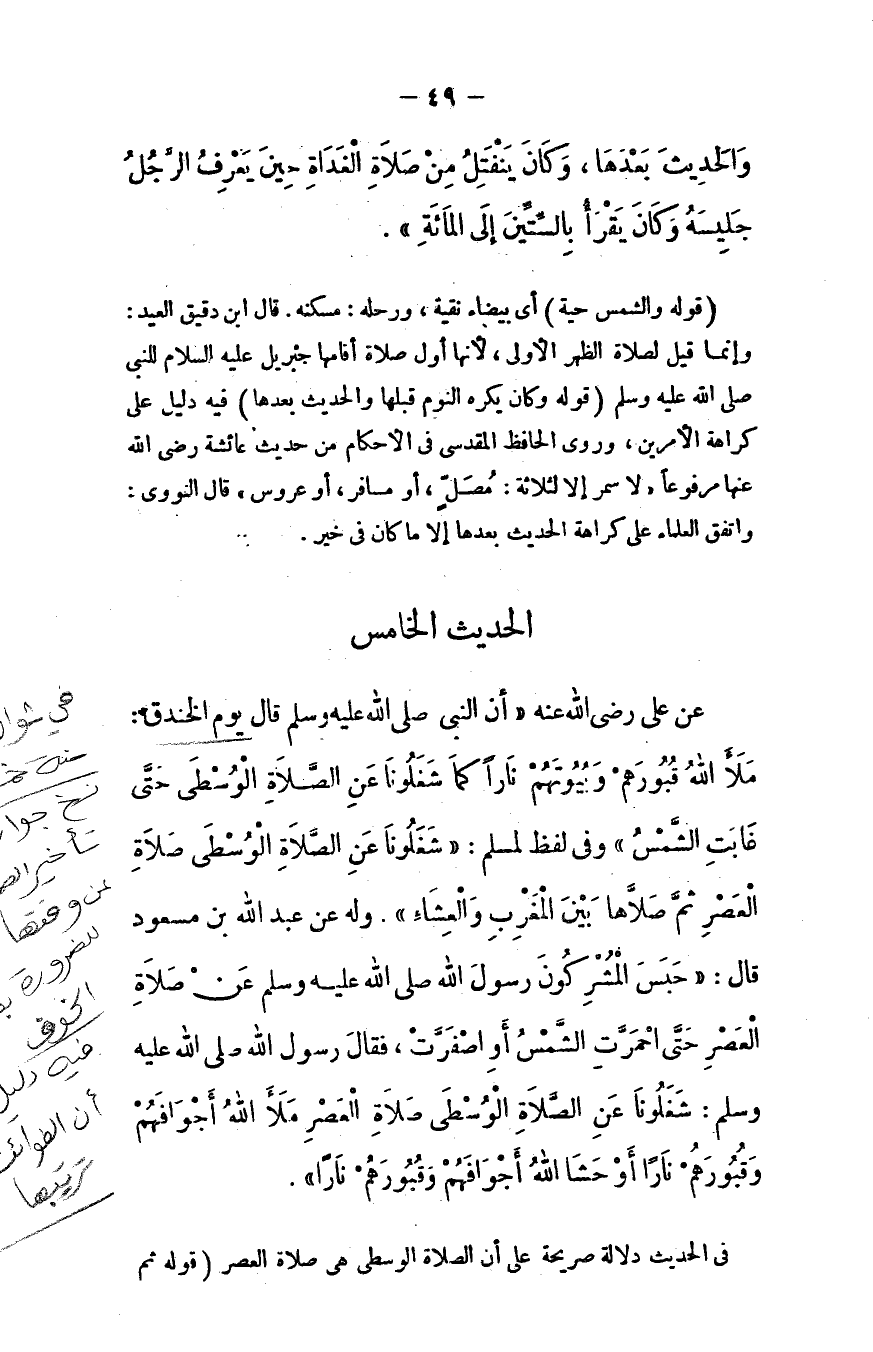 — ٤٩ —
وَالحَدِيثَ بَعْدَهَا ، وَكَانَ يَنْفَتِلُ مِنْ صَلَاةِ الْغَدَاةِ حِينَ يَعْرِفُ الرَّجُلُ
جَلِيسَهُ وَكَانَ يَقْرَأُ بِالسِّتِّينَ إِلَى المَائَةِ » .
( قوله والشمس حية ) أى بيضاء نقية ، ورحله : مسكنه . قال ابن دقيق العيد :
وإنما قيل لصلاة الظهر الأولى ، لأنها أول صلاة أقامها جبريل عليه السلام للنبي
صلى الله عليه وسلم ( قوله وكان يكره النوم قبلها والحديث بعدها ) فيه دليل على
كراهة الأمرين ، وروى الحافظ المقدسى فى الاحكام من حديث عائشة رضى الله
عنها مرفوعاً « لا سمر إلا لثلاثة : مُصَلٍّ ، أو مسافر ، أو عروس » قال النووى :
واتفق العلماء على كراهة الحديث بعدها إلا ما كان فى خير .
الحديث الخامس
عن على رضى الله عنه « أن النبى صلى الله عليه وسلم قال يوم الخندق :
مَلَأَ اللهُ قُبُورَهُمْ وَبُيُوتَهُمْ نَاراً كَمَا شَغَلُونَا عَنِ الصَّلَاةِ الْوُسْطَى حَتَّى
غَابَتِ الشَّمْسُ » وفى لفظ لمسلم : « شَغَلُونَا عَنِ الصَّلَاةِ الْوُسْطَى صَلَاةِ
الْعَصْرِ ثُمَّ صَلَّاهَا بَيْنَ الْمَغْرِبِ وَالْعِشَاءِ » . وله عن عبد الله بن مسعود
قال : « حَبَسَ الْمُشْرِكُونَ رسولَ الله صلى الله عليه وسلم عَنْ صَلَاةِ
الْعَصْرِ حَتَّى احْمَرَّتِ الشَّمْسُ أَوِ اصْفَرَّتْ ، فقالَ رسول الله صلى الله عليه
وسلم : شَغَلُونَا عَنِ الصَّلَاةِ الْوُسْطَى صَلَاةِ الْعَصْرِ مَلَأَ اللهُ أَجْوَافَهُمْ
وَقُبُورَهُمْ نَارًا أَوْ حَشَا اللهُ أَجْوَافَهُمْ وَقُبُورَهُمْ نَارًا» .
فى الحديث دلالة صريحة على أن الصلاة الوسطى هى صلاة العصر ( قوله ثم
في شوال
سنة
نسخ جواز
تأخير
عن وقتها
للضرورة
الخوف
فيه دليل
أن
ترتيبها